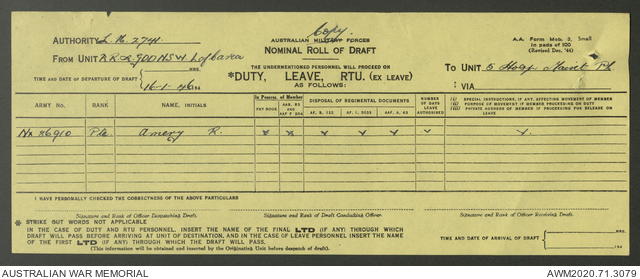 Copy
AUTHORITY L M. 2741.
AUSTRALIAN MILITARY FORCES
NOMINAL ROLL OF DRAFT
A.A. Form Mob. 3, Small
In pads of 100
(Revised Dec. '44)
FROM UNIT R.R. & GDD NSW L of C area
THE UNDERMENTIONED PERSONNEL WILL PROCEED ON
*DUTY, LEAVE, RTU. (EX LEAVE)
AS FOLLOWS:
TO UNIT 5 Hosp
TIME AND DATE OF DEPARTURE OF DRAFT HRS.
16-1-46 194
VIA
ARMY No. RANK NAME, INITIALS
In Possess. of Member
PAY BOOK AAB. 83 AND AAF P 20A
DISPOSAL OF REGIMENTAL DOCUMENTS
AF. B. 122 AF. I. 3028 AAF. A. 63
NUMBER OF DAYS LEAVE AUTHORISED
SPECIAL INSTRUCTIONS, IF ANY, AFFECTING MOVEMENT OF MEMBER
PURPOSE OF MOVEMENT IF MEMBER PROCEEDING ON DUTY
PRIVATE ADDRESS OF MEMBER IF PROCEEDING FOR RELEASE ON LEAVE
NX 86910 Pte Amery R.
I HAVE PERSONALLY CHECKED THE CORRECTNESS OF THE ABOVE PARTICULARS
Signature and Rank of Officer Despatching Draft. Signature and Rank of Draft Conducting Officer. Signature and Rank of Officer Receiving Draft.
* STRIKE OUT WORDS NOT APPLICABLE
IN THE CASE OF DUTY AND RTU PERSONNEL, INSERT THE NAME OF THE FINAL LTD (IF ANY) THROUGH WHICH
DRAFT WILL PASS BEFORE ARRIVING AT UNIT OF DESTINATION, AND IN CASE OF LEAVE PERSONNEL INSERT THE NAME
OF THE FIRST LTD (IF ANY) THROUGH WHICH THE DRAFT WILL PASS.
(This information will be obtained and inserted by the Originating Unit before despatch of draft).
TIME AND DATE OF ARRIVAL OF DRAFT HRS.
194
AUSTRALIAN WAR MEMORIAL
AWM2020.71.3079